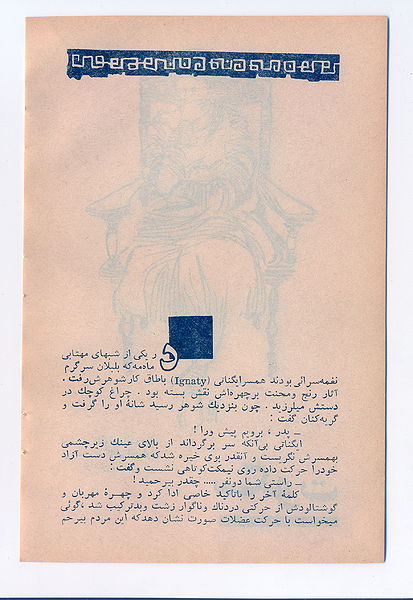 در یکی از شبهای مهتابی
ماه‌مه که بلبلان سرگرم
نغمه‌سرائی بودند همسر ایگناتی (Ignaty) باطاق کار شوهرش رفت .
آثار رنج ومحنت برچهره‌اش نقش بسته بود . چراغ کوچك در
دستش میلرزید . چون بنزدیك شوهر رسید شانهٔ او را گرفت و
گریه‌کنان گفت :
ـ پدر ، برویم پیش ورا !
ایگناتی بی‌آنکه سر برگرداند از بالای عینك زیرچشمی
بهمسرش نگریست و آنقدر بوی خیره شدکه همسرش دست آزاد
خودرا حرکت داده روی نیمکت‌کوتاهی نشست وگفت :
ـ راستی شما دونفر ..... چقدر بیرحمید !
کلمهٔ آخر را باتاکید خاصی ادا کرد و چهرهٔ مهربان و
گوشتالودش از حرکتی دردناك وناگوار زشت وبدترکیب شد ،گوئی
میخواست با حرکت عضلات صورت نشان دهدکه این مردم بیرحم